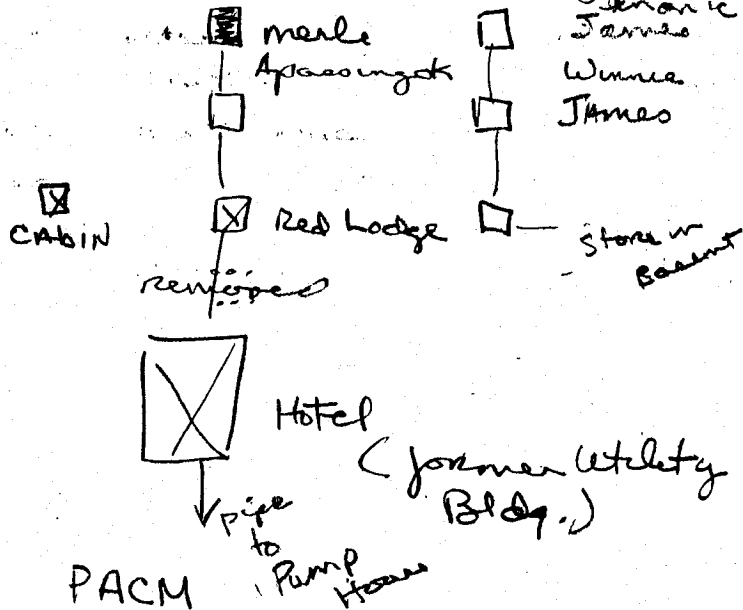 merle
Apassingok
James
Winnie
JAMES
CABIN
Red Lodge
Store in
Basemt
removed
Hotel
(former Utility
Bldg.)
pipe
to
Pump
House
PACM